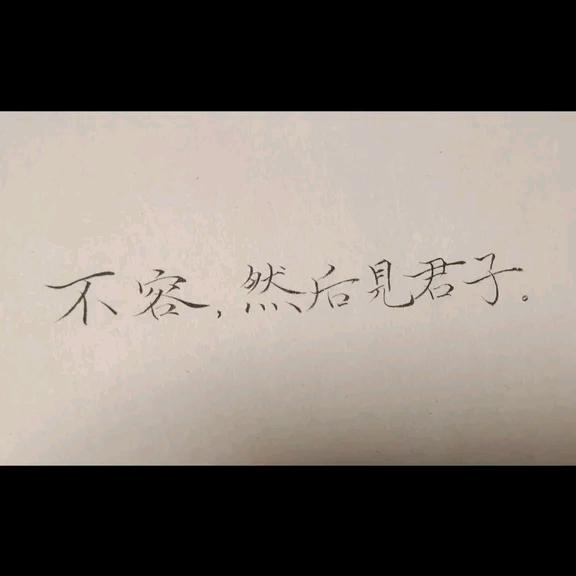 不容，然后見君子。